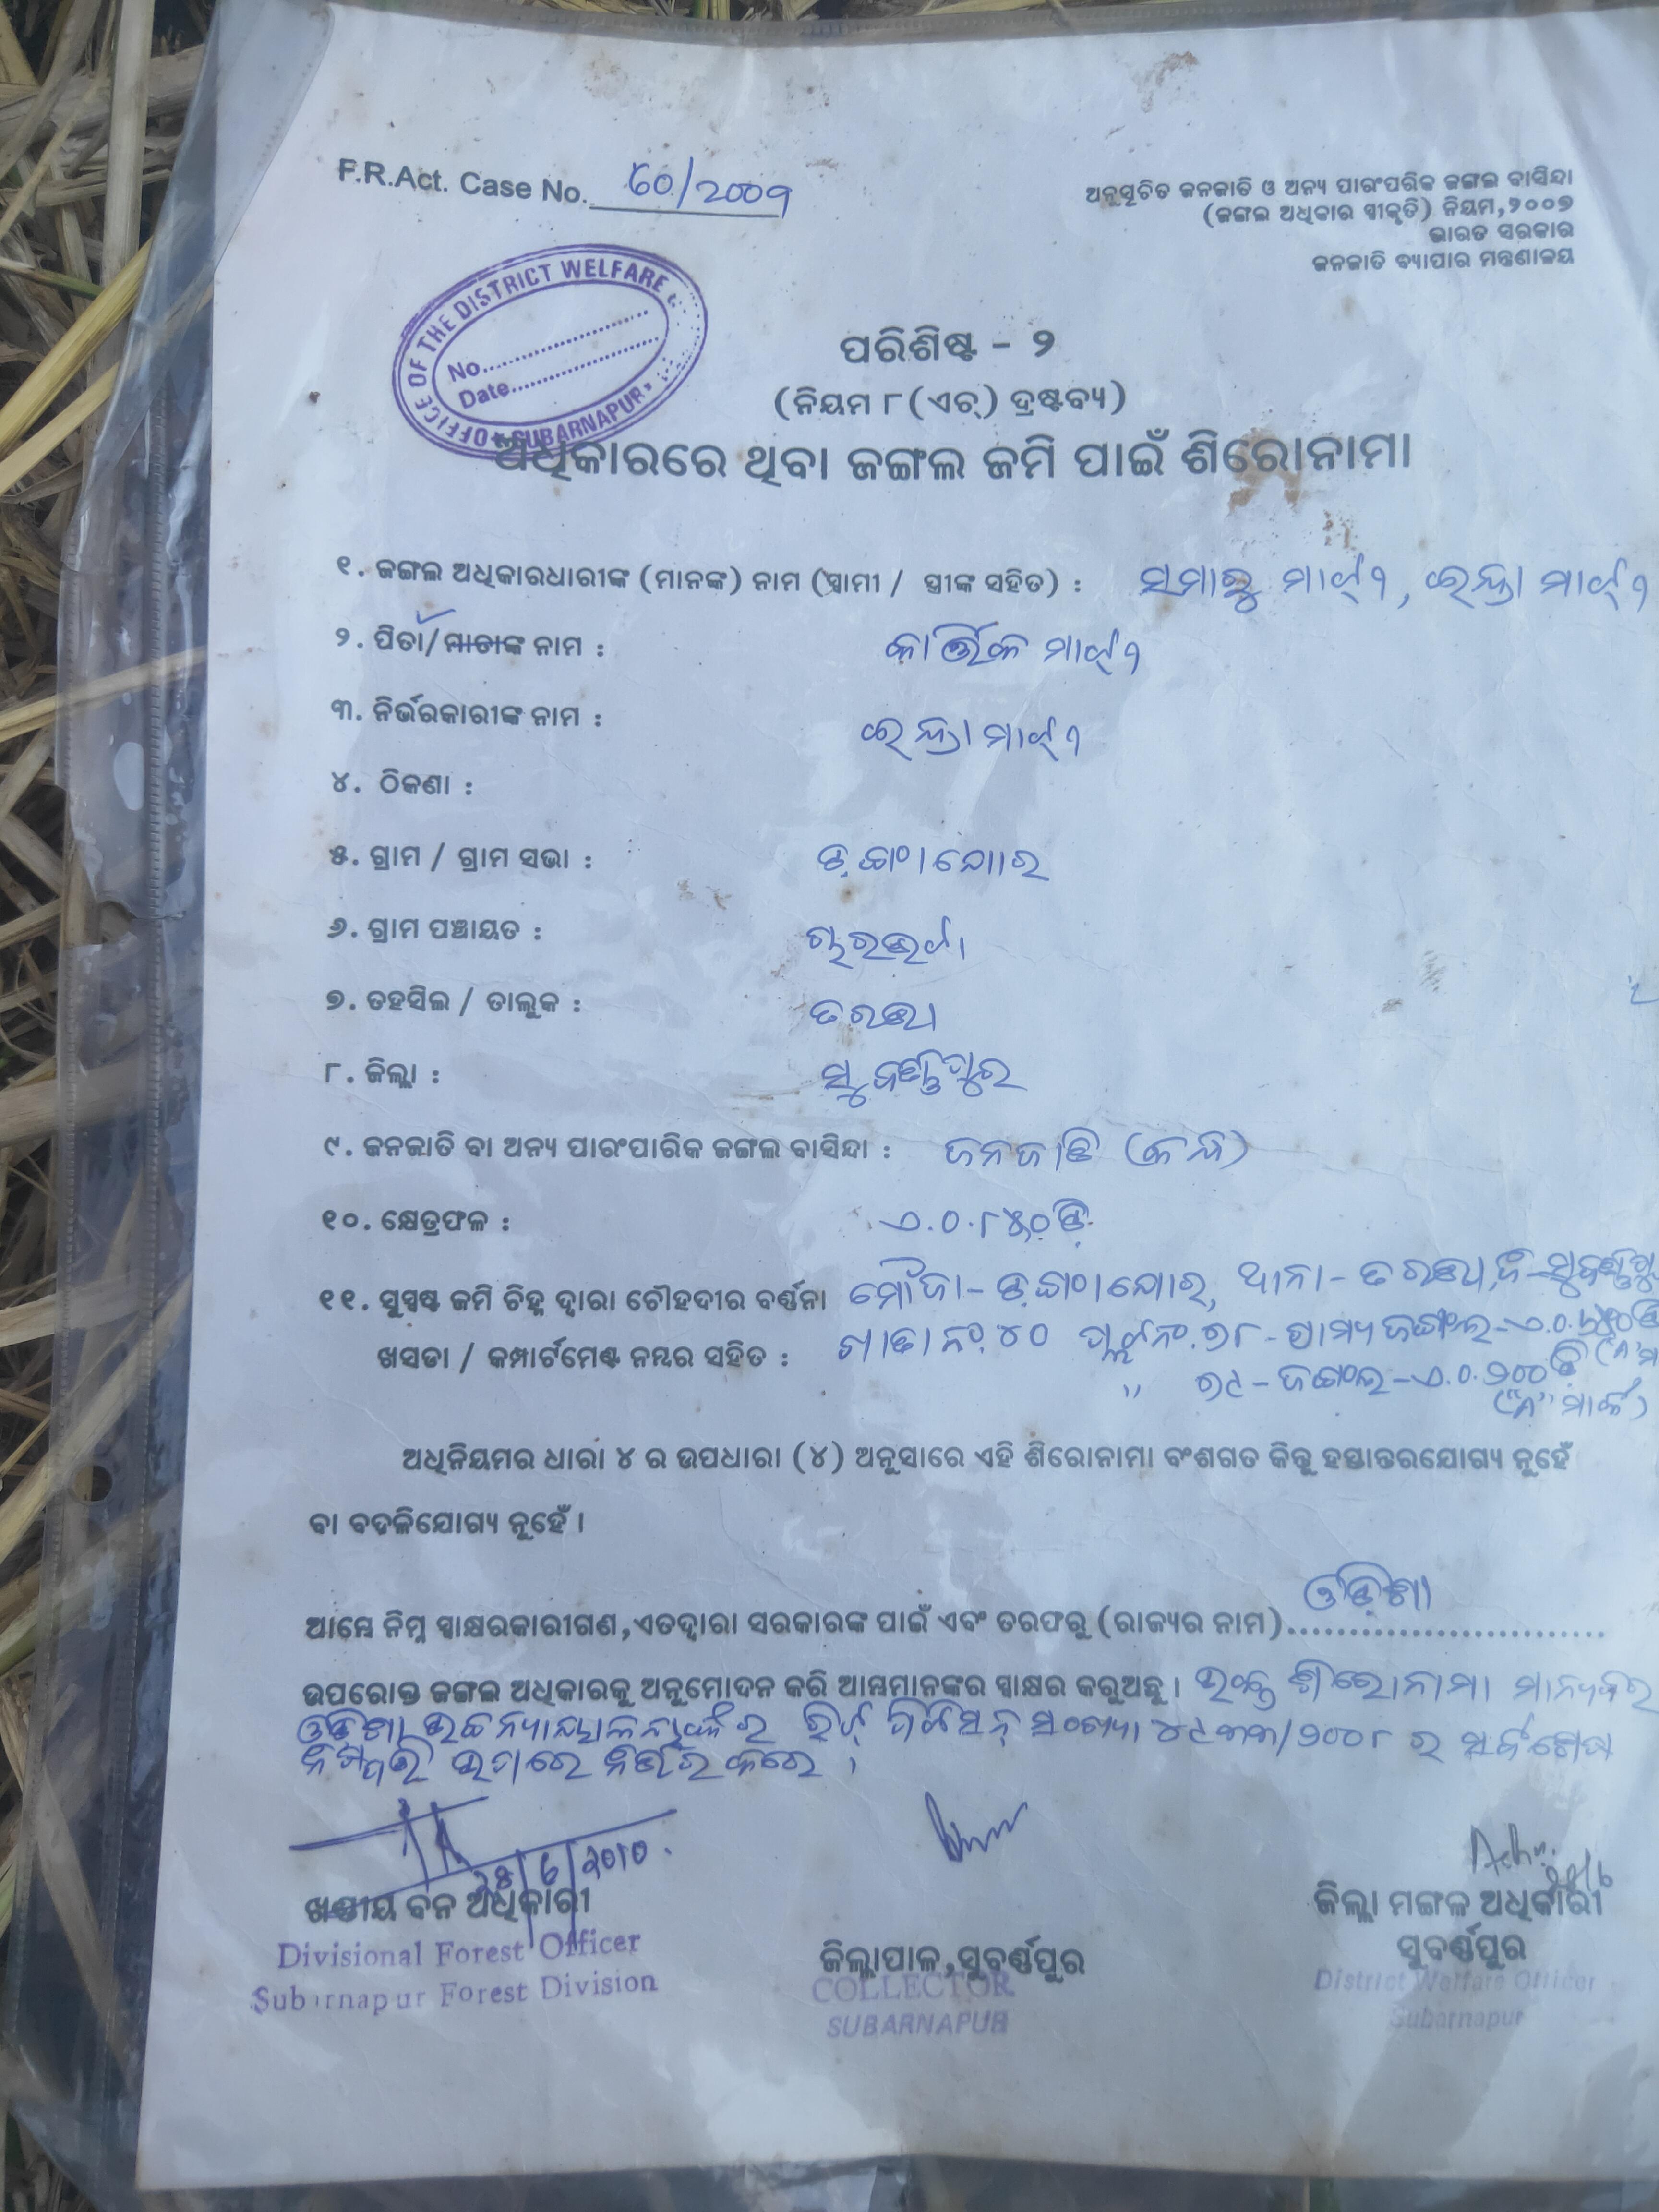 F.R.Act. Case No. 60/2009
ଅନୁସୂଚିତ ଜନଜାତି ଓ ଅନ୍ୟ ପାରଂପରିକ ଜଙ୍ଗଲ ବାସିନ୍ଦା
(ଜଙ୍ଗଲ ଅଧିକାର ସ୍ୱୀକୃତି) ନିୟମ,୨୦୦୭
ଭାରତ ସରକାର
ଜନଜାତି ବ୍ୟାପାର ମନ୍ତ୍ରଣାଳୟ
OFFICE OF THE DISTRICT WELFARE
No..............
Date..............
SUBARNAPUR
ପରିଶିଷ୍ଟ - ୨
(ନିୟମ ୮(ଏଚ୍) ଦ୍ରଷ୍ଟବ୍ୟ)
ଅଧିକାରରେ ଥିବା ଜଙ୍ଗଲ ଜମି ପାଇଁ ଶିରୋନାମା
୧. ଜଙ୍ଗଲ ଅଧିକାରଧାରୀଙ୍କ (ମାନଙ୍କ) ନାମ (ସ୍ୱାମୀ / ସ୍ତ୍ରୀଙ୍କ ସହିତ) : ସମାରୁ
୨. ପିତା/ମାତାଙ୍କ ନାମ : କାର୍ତ୍ତିକ
୩. ନିର୍ଭରକାରୀଙ୍କ ନାମ :
୪. ଠିକଣା :
୫. ଗ୍ରାମ / ଗ୍ରାମ ସଭା :
୬. ଗ୍ରାମ ପଞ୍ଚାୟତ :
୭. ତହସିଲ / ତାଲୁକ : ତରଭା
୮. ଜିଲ୍ଲା : ସୁବର୍ଣ୍ଣପୁର
୯. ଜନଜାତି ବା ଅନ୍ୟ ପାରଂପାରିକ ଜଙ୍ଗଲ ବାସିନ୍ଦା : ଜନଜାତି (କନ୍ଧ)
୧୦. କ୍ଷେତ୍ରଫଳ : ଏ.୦.୮୫୦ ଡି.
୧୧. ସୁସ୍ପଷ୍ଟ ଜମି ଚିହ୍ନ ଦ୍ୱାରା ଚୌହଦୀର ବର୍ଣ୍ଣନା ମୌଜା- ଥାନା- ତରଭା,
ଖସଡା / କମ୍ପାର୍ଟମେଣ୍ଟ ନମ୍ବର ସହିତ : ଖାତା ନଂ. ୪୦ ପ୍ଲଟ୍ ନଂ. ୭୮ - ଗ୍ରାମ୍ୟ ଜଙ୍ଗଲ-
" ଜଙ୍ଗଲ-ଏ.୦.୨୦୦ ଡି
("A" ମାର୍କ)
ଅଧିନିୟମର ଧାରା ୪ ର ଉପଧାରା (୪) ଅନୁସାରେ ଏହି ଶିରୋନାମା ବଂଶଗତ କିନ୍ତୁ ହସ୍ତାନ୍ତରଯୋଗ୍ୟ ନୁହେଁ
ବା ବଦଳିଯୋଗ୍ୟ ନୁହେଁ ।
ଆମ୍ଭେ ନିମ୍ନ ସ୍ୱାକ୍ଷରକାରୀଗଣ,ଏତଦ୍ୱାରା ସରକାରଙ୍କ ପାଇଁ ଏବଂ ତରଫରୁ (ରାଜ୍ୟର ନାମ) ଓଡ଼ିଶା
ଉପରୋକ୍ତ ଜଙ୍ଗଲ ଅଧିକାରକୁ ଅନୁମୋଦନ କରି ଆମ୍ଭମାନଙ୍କର ସ୍ୱାକ୍ଷର କରୁଅଛୁ । ଉକ୍ତ ଶିରୋନାମା ମାନ୍ୟବର
ଓଡ଼ିଶା ଉଚ୍ଚ ନ୍ୟାୟାଳୟଙ୍କ ର ରିଟ୍ ପିଟିସନ୍ ସଂଖ୍ୟା ୪୯୩୩/୨୦୦୮ ର
ଉପରେ ନିର୍ଭର କରେ ।
28/6/2010.
ଖଣ୍ଡୀୟ ବନ ଅଧିକାରୀ
Divisional Forest Officer
Subarnapur Forest Division
ଜିଲ୍ଲାପାଳ,ସୁବର୍ଣ୍ଣପୁର
COLLECTOR
SUBARNAPUR
ଜିଲ୍ଲା ମଙ୍ଗଳ ଅଧିକାରୀ
ସୁବର୍ଣ୍ଣପୁର
District Welfare Officer
Subarnapur